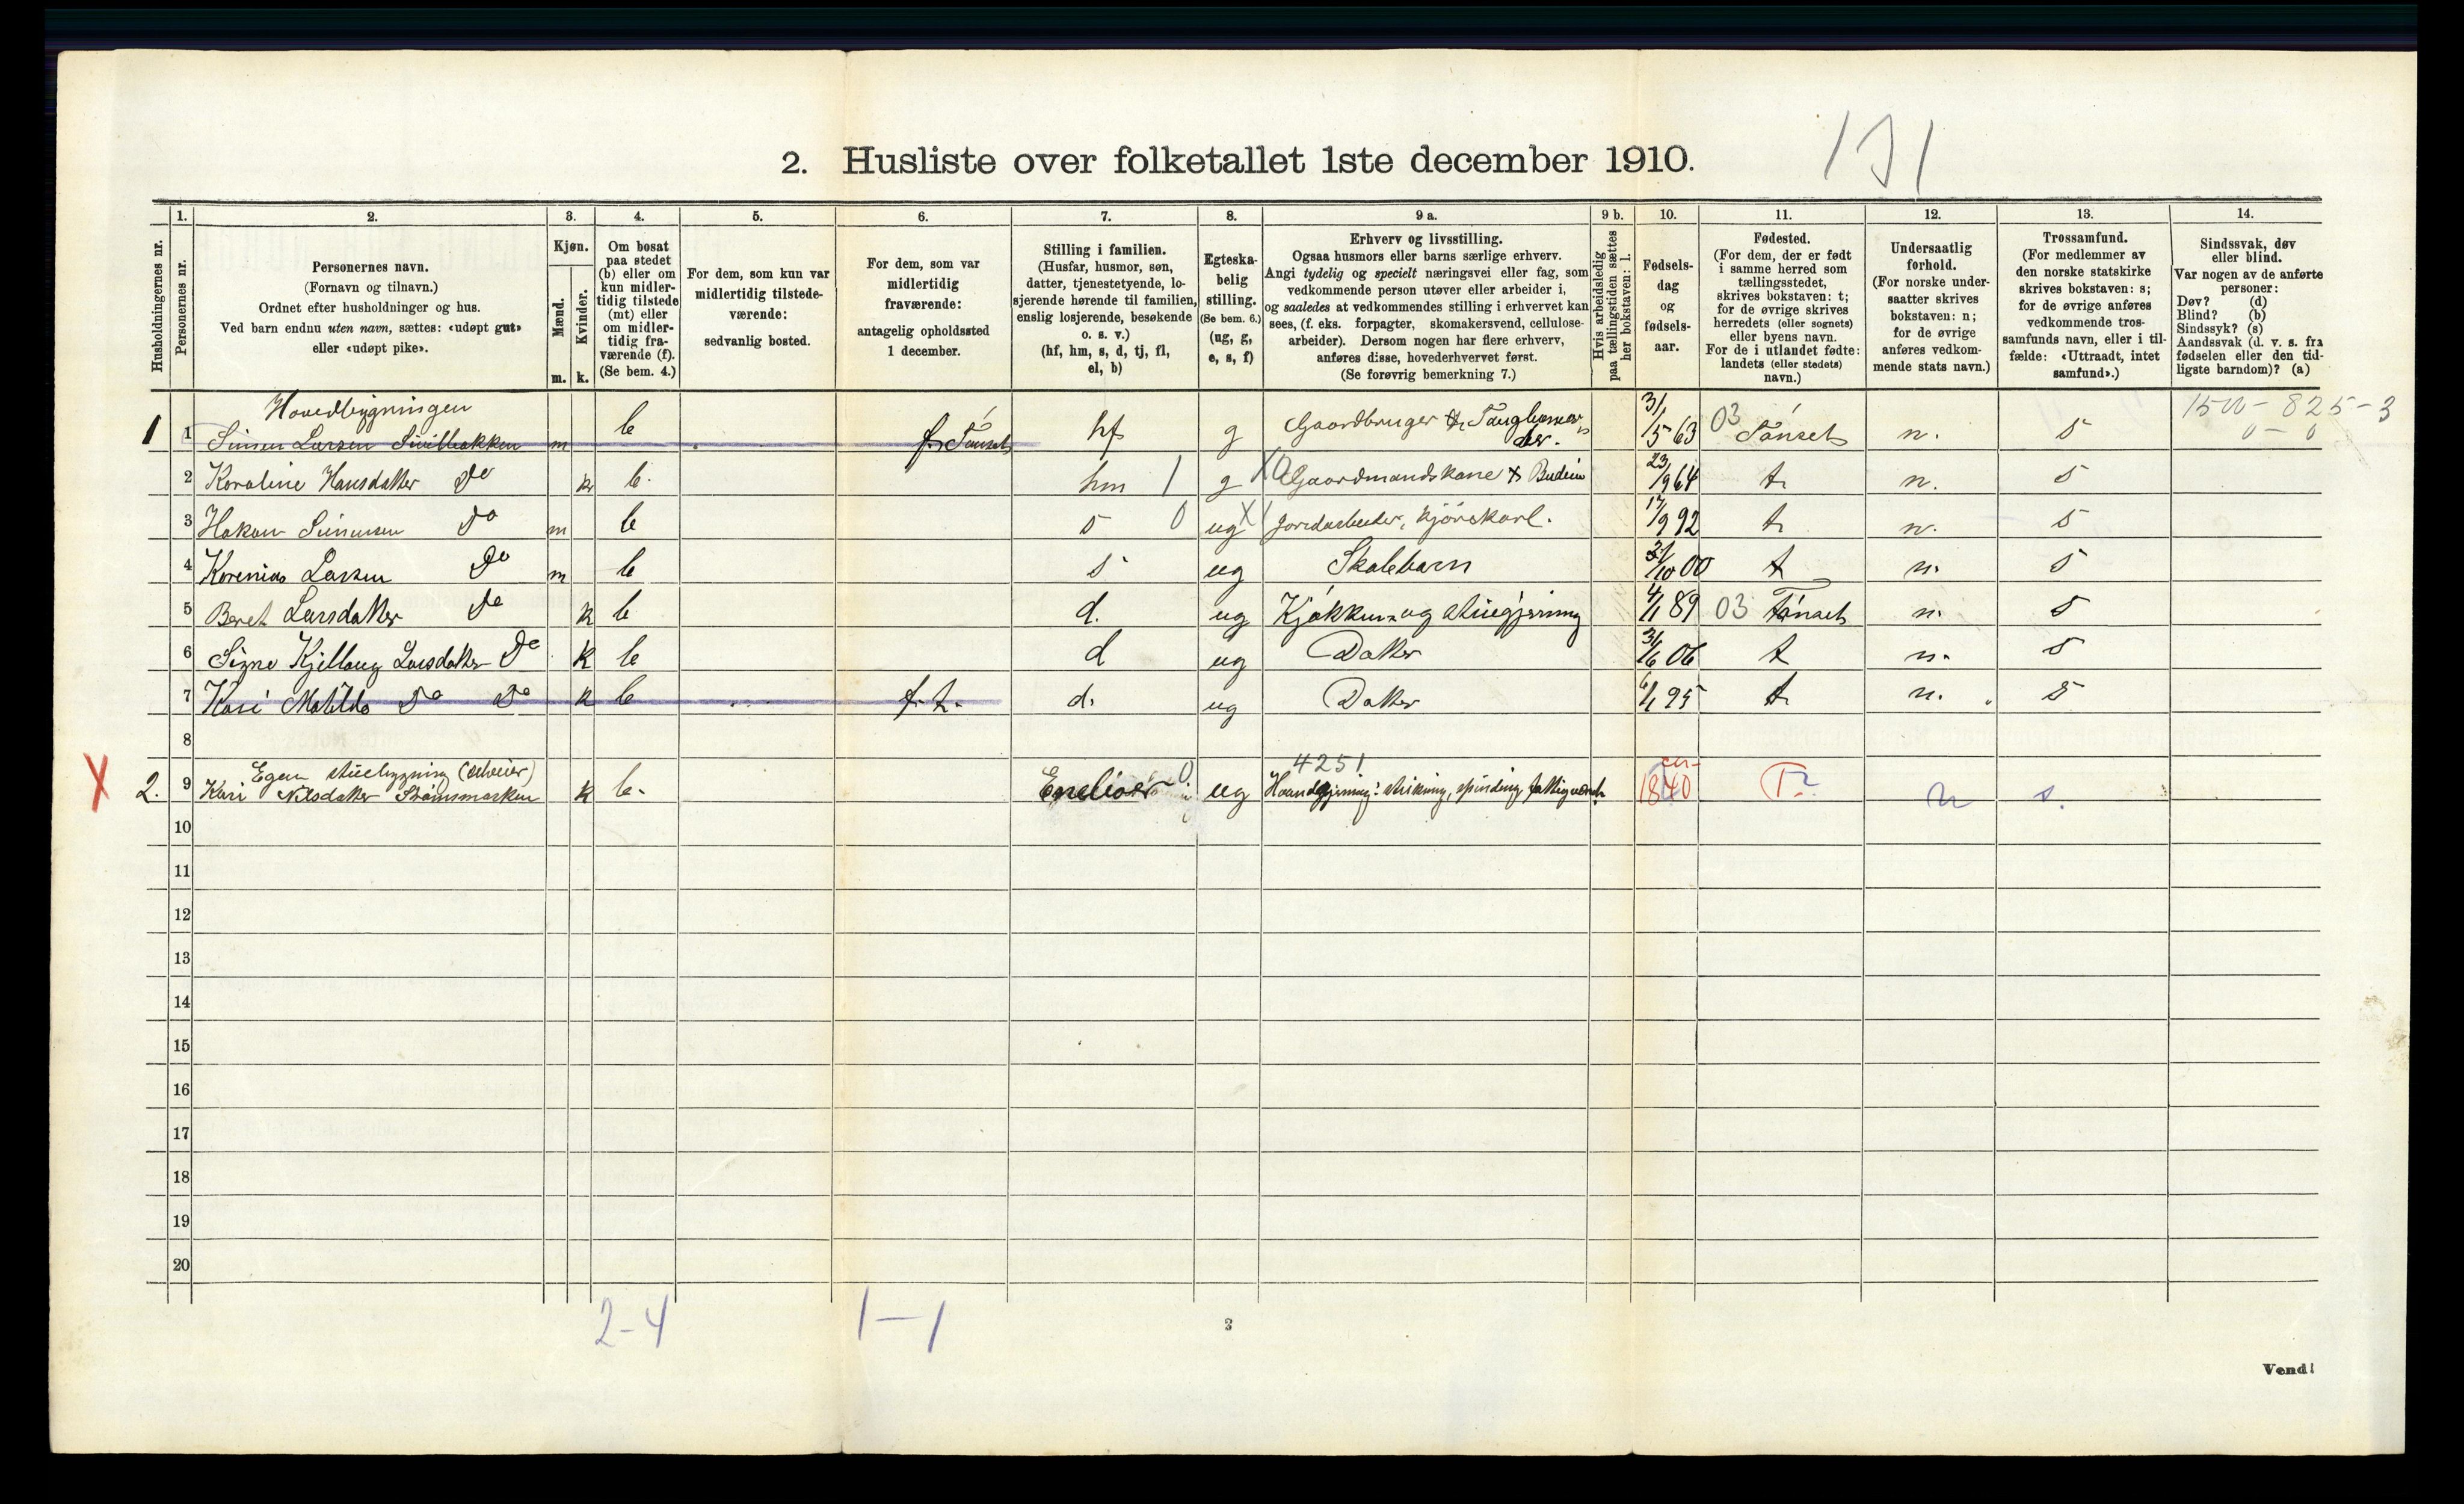 131
2. Husliste over folketallet 1ste december 1910.
Husholdningernes nr.
1. 2. 3. 4. 5. 6. 7. 8. 9 a. 9 b. 10. 11. 12. 13. 14.
Personernes nr.
Personernes navn.
(Fornavn og tilnavn.)
Ordnet efter husholdninger og hus.
Ved barn endnu uten navn, sættes: «udøpt gut»
eller «udøpt pike».
Kjøn.
Mænd.
Kvinder.
m. k.
Om bosat
paa stedet
(b) eller om
kun midler-
tidig tilstede
(mt) eller
om midler-
tidig fra-
værende (f).
(Se bem. 4.)
For dem, som kun var
midlertidig tilstede-
værende:
sedvanlig bosted.
For dem, som var
midlertidig
fraværende:
antagelig opholdssted
1 december.
Stilling i familien.
(Husfar, husmor, søn,
datter, tjenestetyende, lo-
sjerende hørende til familien,
enslig losjerende, besøkende
o. s. v.)
(hf, hm, s, d, tj, fl,
el, b)
Egteska-
belig
stilling.
(Se bem. 6.)
(ug, g,
e, s, f)
Erhverv og livsstilling.
Ogsaa husmors eller barns særlige erhverv.
Angi tydelig og specielt næringsvei eller fag, som
vedkommende person utøver eller arbeider i,
og saaledes at vedkommendes stilling i erhvervet kan
sees, (f. eks. forpagter, skomakersvend, cellulose-
arbeider). Dersom nogen har flere erhverv,
anføres disse, hovederhvervet først.
(Se forøvrig bemerkning 7.)
Hvis arbeidsledig
paa tællingstiden sættes
her bokstaven: l.
Fødsels-
dag
og
fødsels-
aar.
Fødested.
(For dem, der er født
i samme herred som
tællingsstedet,
skrives bokstaven: t;
for de øvrige skrives
herredets (eller sognets)
eller byens navn.
For de i utlandet fødte:
landets (eller stedets)
navn.)
Undersaatlig
forhold.
(For norske under-
saatter skrives
bokstaven: n;
for de øvrige
anføres vedkom-
mende stats navn.)
Trossamfund.
(For medlemmer av
den norske statskirke
skrives bokstaven: s;
for de øvrige anføres
vedkommende tros-
samfunds navn, eller i til-
fælde: «Uttraadt, intet
samfund».)
Sindssvak, døv
eller blind.
Var nogen av de anførte
personer:
Døv? (d)
Blind? (b)
Sindssyk? (s)
Aandssvak (d. v. s. fra
fødselen eller den tid-
ligste barndom)? (a)
Hovedbygningen
1 1 Simen Larsen m b f. Tónset hf g Gaardbruger 31/5 63 03 Tónset n. s 1500-825-3
0-0
2 Karoline Hansdatter Do k b. hm 1 g X0 Gaardmandskone Budeie 23/9 64 t n. s
3 Hakon Simensen Do m b s 0 ug X1 Jordarbeider, kjörekarl. 17/9 92 t n. s
4 Larsen Do m b s ug Skolebarn 31/10 00 t n. s
5 Beret Larsdatter Do k b d. ug Kjøkken- og stuegjerning 4/1 89 03 Tónset n. s
6 Signe Kjellaug Larsdatter Do k b d ug Datter 31/6 06 t n. s
7 Kari Matilda Do Do k b f. t. d. ug Datter 6/1 95 t n. s
8
Egen stuebygning 4251
X 2. 9 Kari Nilsdatter Strömsmarken k b. 0 ug Haandgjerning: strikning, spinding, 1840 T? n s.
10
11
12
13
14
15
16
17
18
19
20
2-4 1-1
Vend!